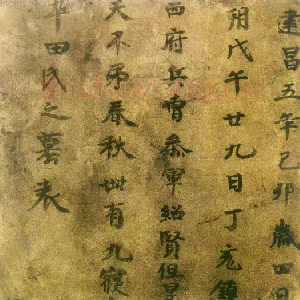 建昌五年己卯歲四月
朔戊午廿九日丁亥鎮
西府兵曹叅軍紹賢但旻
天不弔春秋卌有九寢
田氏之墓表